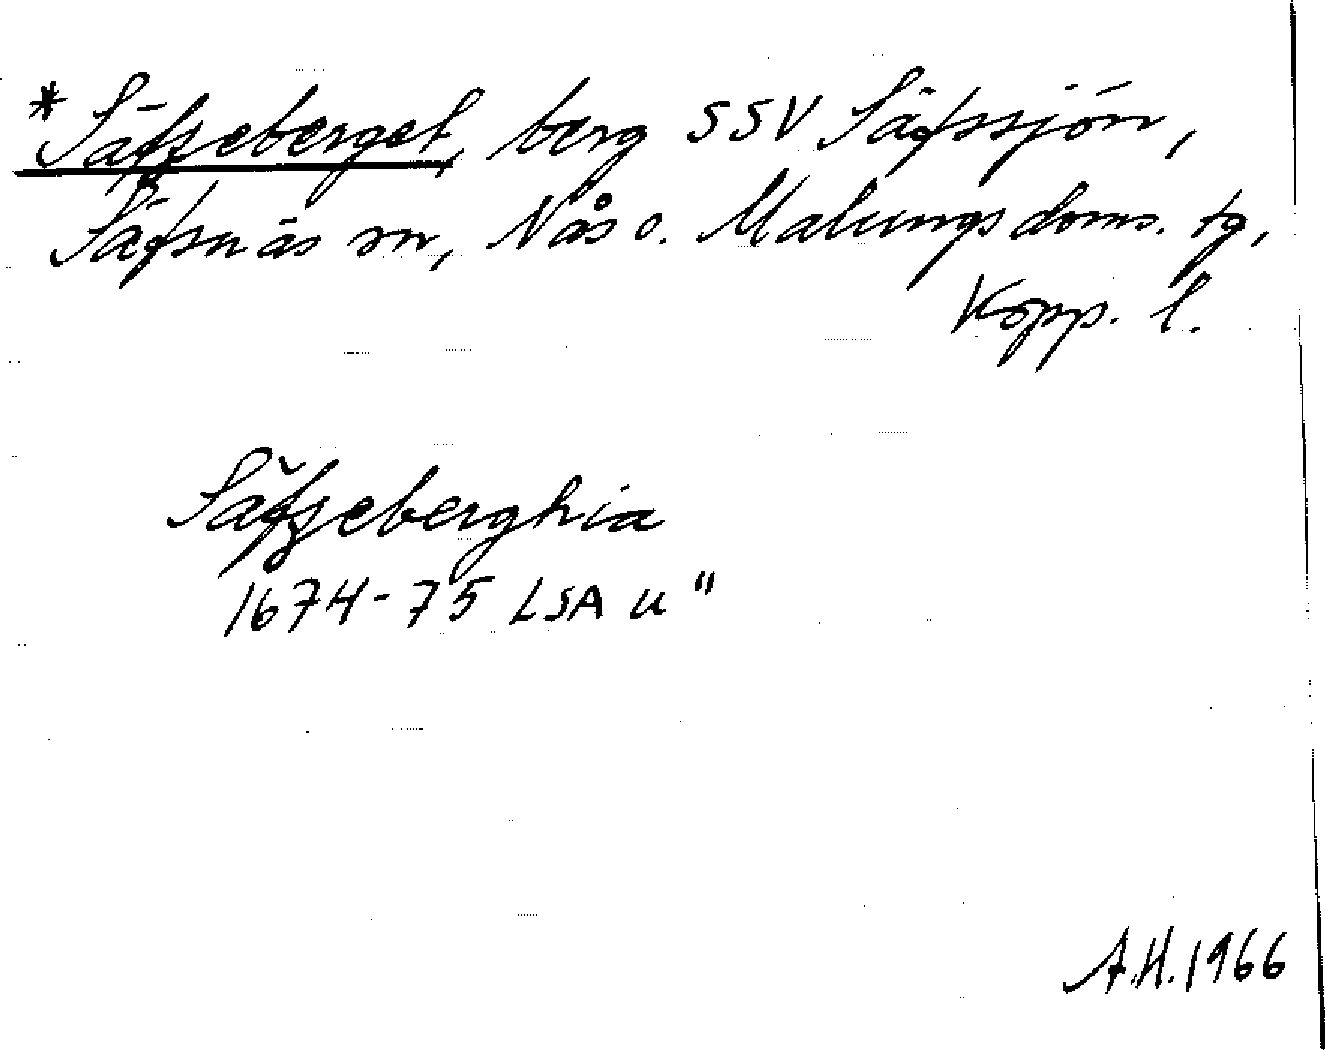 *Säfzeberget, berg SSV Säfssjön,
Säfsnäs sn, Nås o. Malungs doms. tg,
Kopp. l.
Säfzeberghia
1674-75 LSA u"
A.H. 1966